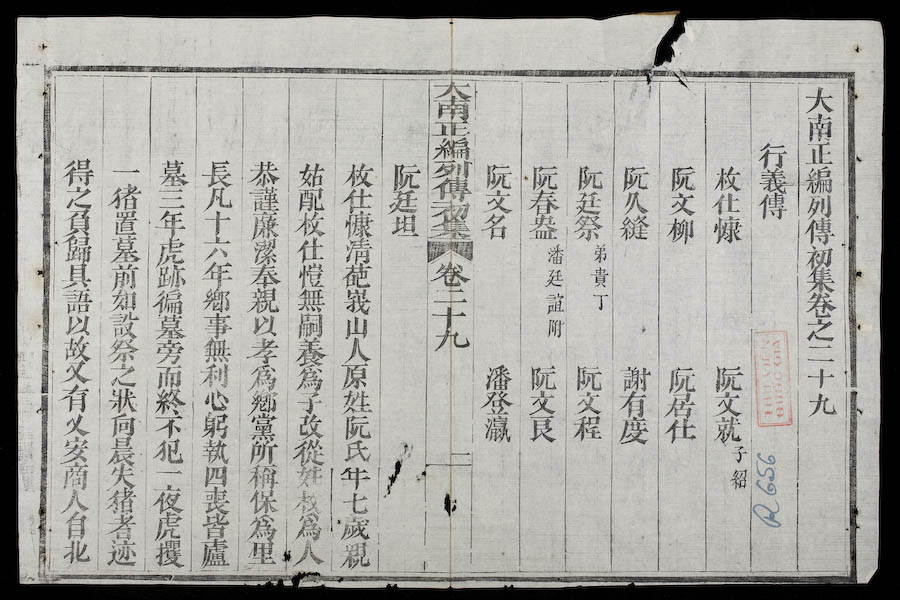 大南正編列傳初集卷之二十九
行義傳
枚仕慷 阮文就 子紹
阮文柳 阮居仕
阮久縫 謝有度
阮廷祭 弟貴丁 阮文程
阮春盎 潘廷誼附 阮文良
阮文名 潘登瀛
大南正編列傳初集 卷二十九 一
阮廷坦
枚仕慷清葩峩山人原姓阮氏年七歲親
姑配枚仕愷無嗣養爲子改從姓枚爲人
恭謹廉潔奉親以孝爲鄉黨所稱保爲里
長凡十六年鄉事無利心躬執四喪皆廬
墓三年虎跡徧墓旁而終不犯一夜虎攫
一猪置墓前如設祭之狀向晨失猪者迹
得之負歸具語以故又有乂安商人自北
R656